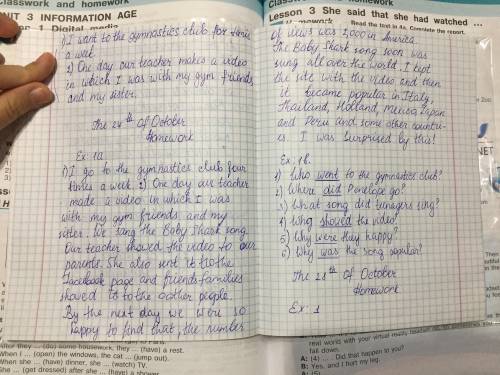 Classwork and homework
UNIT 3 INFORMATION AGE
1) I want to the gymnastics club for times
a week.
2) One day our teacher makes a video
in which I was with my gym friends
and my sister.
The 28th Of October
Homework
Ex: 1a.
1) I go to the gymnastics club four
times a week. 2) One day our teacher
made a video in which I was
with my gym friends and my
sister. We sang the Baby Shark song
Our teacher showed the video to our
parents. She also sent it to the
Facebook page and friends families
showed to to the oother people.
By the next day we were so
happy to find that, the number
After they ... (do) some housework, they ... (have) a rest.
When I ... (open) the windows, the cat ... (jump out).
When she ... (have) dinner, she ... (watch) TV.
She ... (get dressed) after she ... (have) a shower.
Classwork and homework
Lesson 3 She said that she had watched ...
Read the text in 4a. Complete the report.
of views was 2,000 in America.
The Baby Shark song soon was
sung all over the world. I kept
the site with the video and then
it became popular in Italy,
Thailand, Holland, Mexico, Japan
and Peru and some other countri-
es. I was surprised by this!
Ex: 1b.
1) Who went to the gymnastics club?
2) Where did Penelope go?
3) What song did teenagers sing?
4) Who showed the video?
5) Why were they happy?
6) Why was the song popular?
The 28th Of October
Homework
Ex: 1
real world with your virtual reality
fall down.
A: (4) ... . Did that happen to you?
B: Yes, and I hurt my leg.